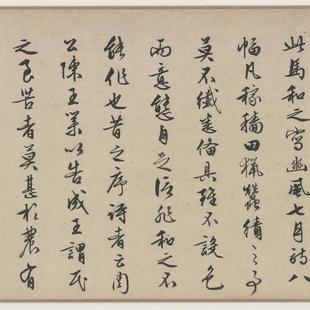 此馬和之寫豳風七月詩八
幅凡稼穡田獵蠶績之事
莫不纖悉備具雖不設色
而意態自足信非和之不
能作也昔之序詩者云周
公陳王業以告成王謂民
之至苦者莫甚於農有